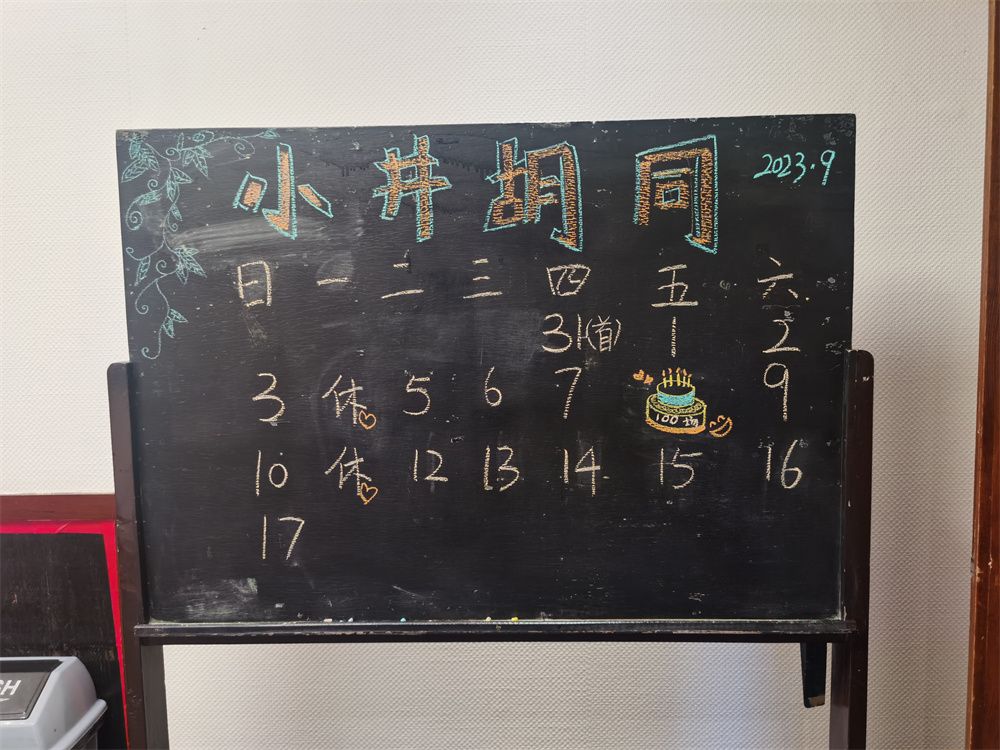 小井胡同 2023.9
日 一 二 三 四 五 六
31(首) 1 2
3 休 5 6 7 100场 9
10 休 12 13 14 15 16
17
SH